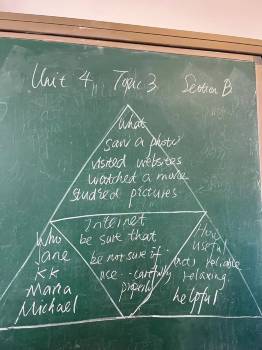 Unit 4 Topic 3 Section B
What
saw a photo
visited websites
watched a movie
studied pictures
Who
Jane
KK
Maria
Michael
Internet
be sure that
be not sure if
use... carefully
properly
How
useful
not reliable
relaxing
helpful